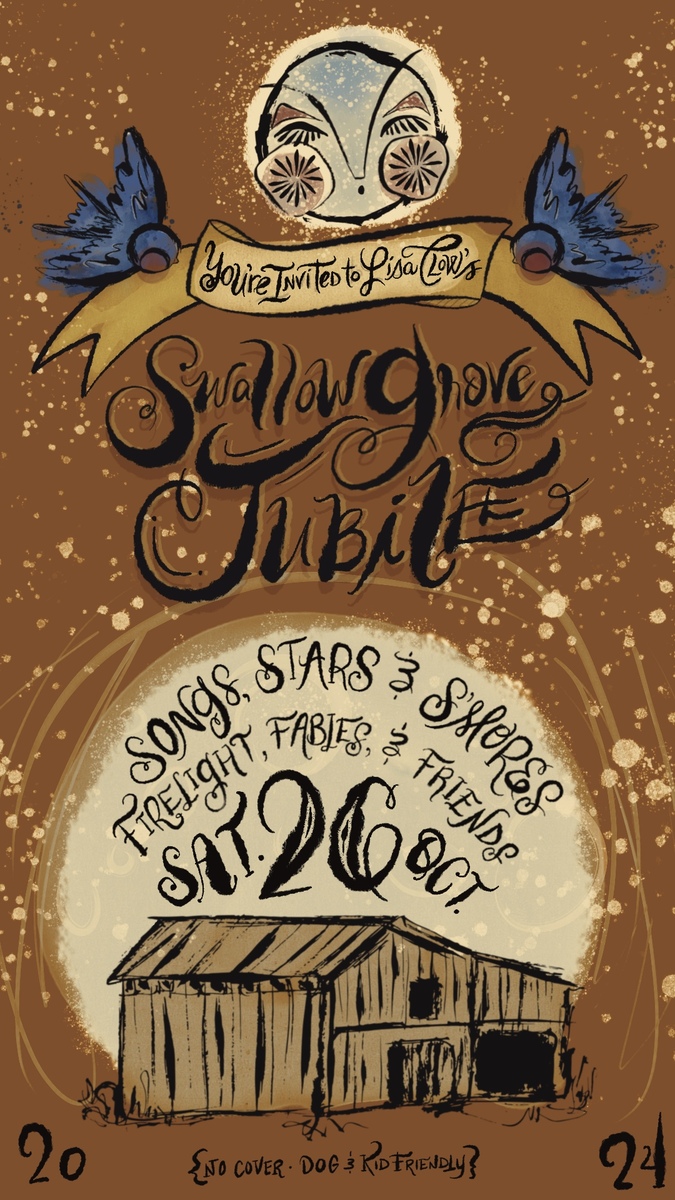 You're Invited to Lisa Clow's
Swallow Grove
Jubilee
SONGS, STARS & S'MORES
FIRELIGHT, FABLES, & FRIENDS
SAT. 26 OCT.
20 24
{NO COVER · DOG & KID FRIENDLY}